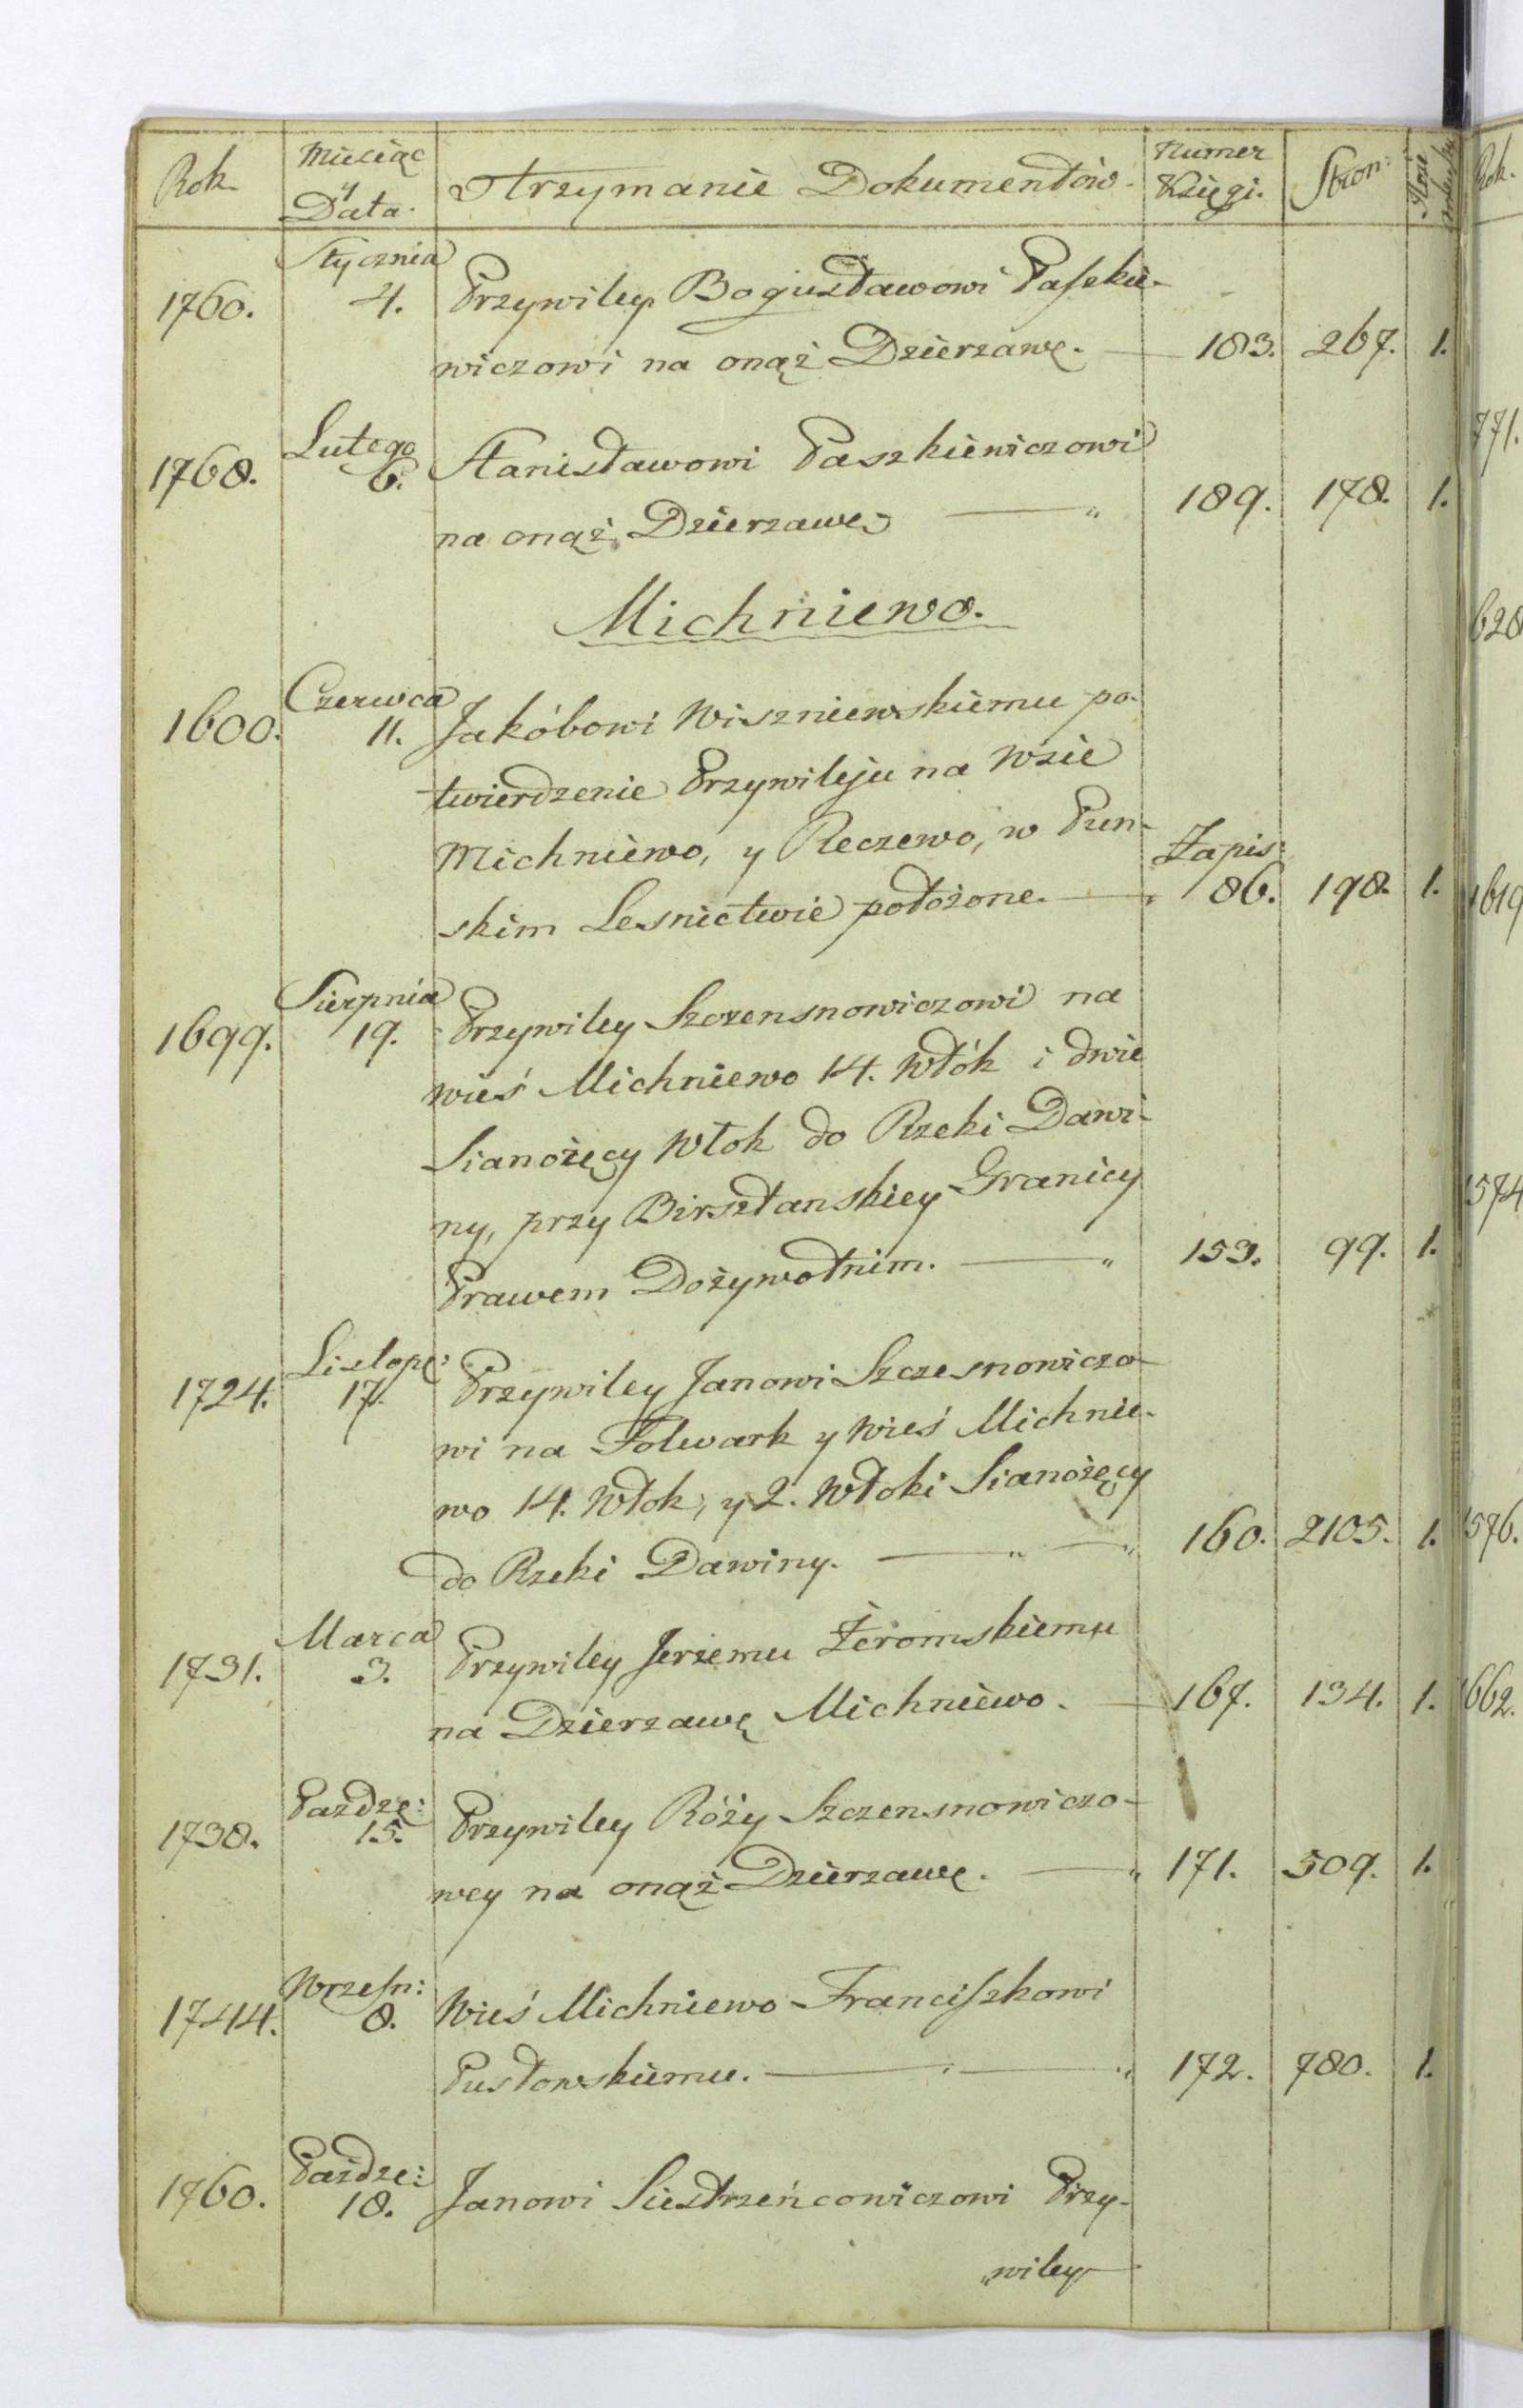 Rok
Miesiąc
y
Data.
Trzymanie Dokumentów.
Numer
Księgi.
Stron:
Stycznia
1760. 4. Przywiley Bogusławowi Paſzkie-
wiczowi na onąż Dzierzawę. 183. 267. 1.
Lutego
1768. 6. Stanisławowi Paszkiewiczowi
na onąż Dzierzawę 189. 178. 1.
Michniewo.
Czerwca
1600. 11. Jakóbowi Wiszniewskiemu po-
twierdzenie Przywileju na Wsie
Michniewo, y Reczewo, w Pun-
Zapis:
skim Lesnictwie położone. 86. 198. 1.
Sierpnia
1699. 19. Przywiley Szczensnowiczowi na
wieś Michniewo 14. Włók i dwie
Sianożęcy Włok do Rzeki Dawi-
ny, przy Birsztanskiey Granicy
Prawem Dożywotnim. 153. 99. 1.
Listopę:
1724. 17. Przywiley Janowi Szczesnowiczo-
wi na Folwark y Wieś Michnie-
wo 14. Włok, y 2. Włoki Sianożęcy
do Rzeki Dawiny. 160. 2105. 1.
Marca
1731. 3. Przywiley Jerzemu Żeromskiemu
na Dzierzawę Michniewo. 167. 134. 1.
Paźdze:
1738. 15. Przywiley Róży Szczensnowiczo-
wey na onąż Dzierzawę. 171. 509. 1.
Wrzeſn:
1744. 8. Wieś Michniewo Franciſzkowi
Pusłowskiemu. 172. 780. 1.
Paźdze:
1760. 18. Janowi Siestrzeńcowiczowi Przy-
wiley
Rok.
771.
628
1619
1574
1576.
1662.